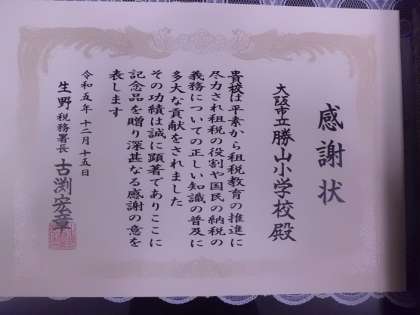 感謝状
大阪市立勝山小学校殿
貴校は平素から租税教育の推進に
尽力され租税の役割や国民の納税の
義務についての正しい知識の普及に
多大な貢献をされました
その功績は誠に顕著でありここに
記念品を贈り深甚なる感謝の意を
表します
令和五年十二月十五日
生野税務署長 古渕宏章